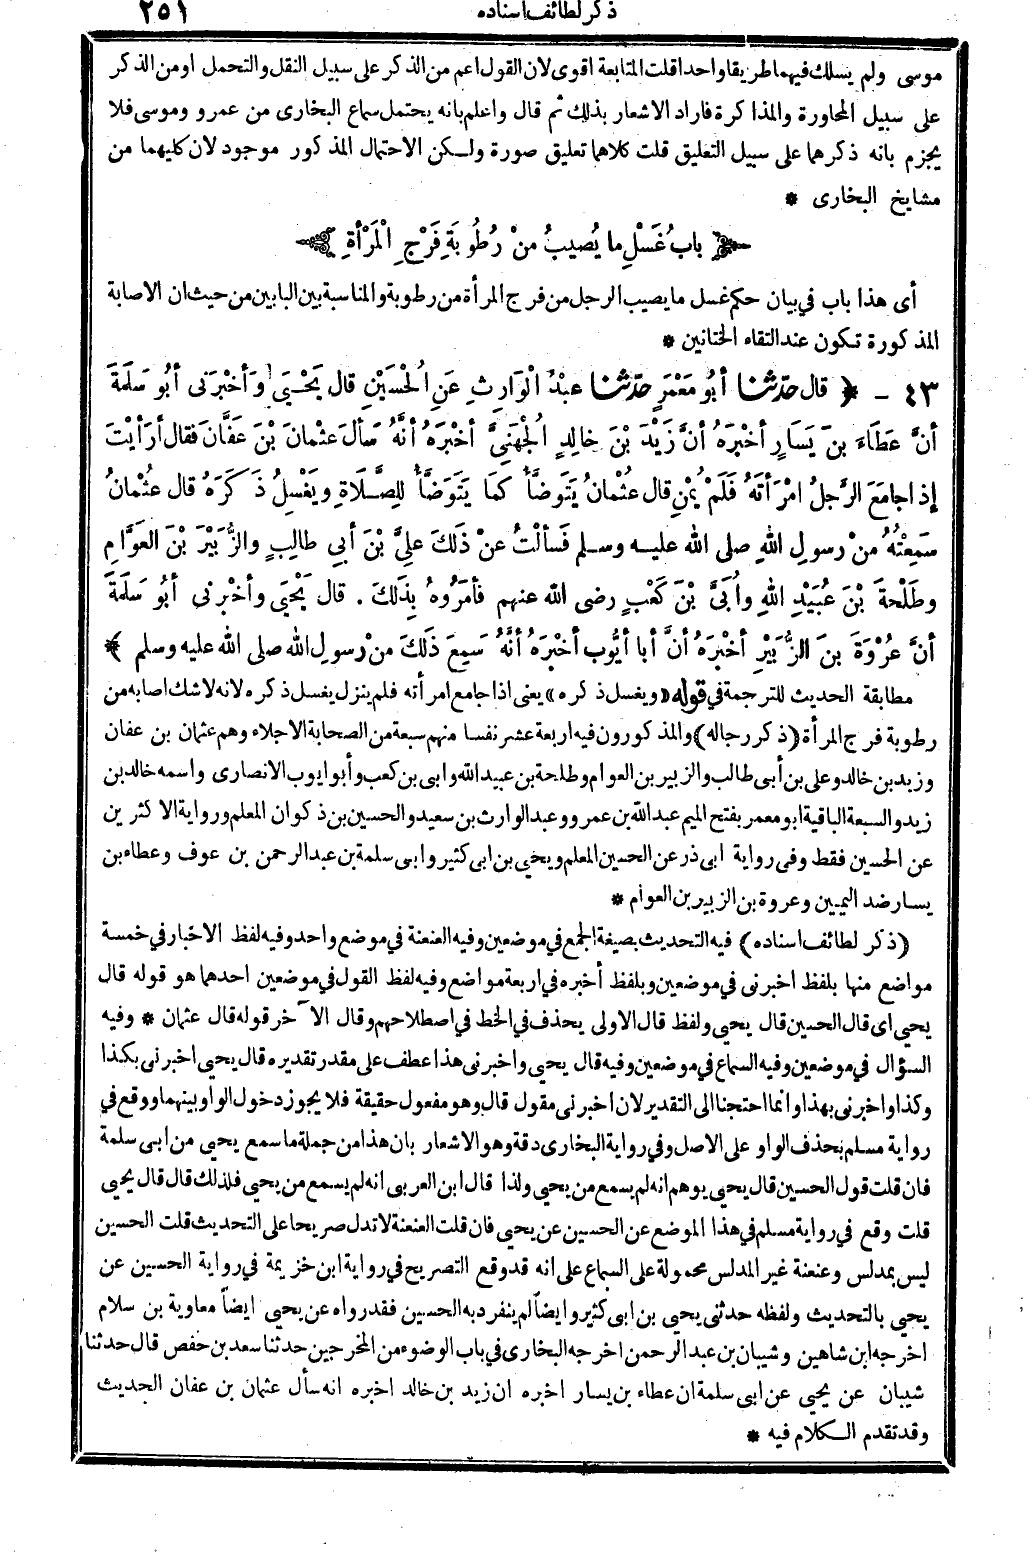 ذكر لطائف اسناده ٢٥١
موسى ولم يسلك فيهما طريقا واحدا قلت المتابعة اقوى لان القول اعم من الذكر على سبيل النقل والتحمل او من الذكر
على سبيل المحاورة والمذاكرة فاراد الاشعار بذلك ثم قال واعلم بانه يحتمل سماع البخارى من عمرو وموسى فلا
يجزم بانه ذكرهما على سبيل التعليق قلت كلاهما تعليق صورة ولكن الاحتمال المذكور موجود لان كليهما من
مشايخ البخارى *
﴿ بابُ غَسْلِ ما يُصِيبُ مِنْ رُطُوبَةِ فَرْجِ الْمَرْأةِ ﴾
أى هذا باب فى بيان حكم غسل ما يصيب الرجل من فرج المرأة من رطوبة والمناسبة بين البابين من حيث ان الاصابة
المذكورة تكون عند التقاء الختانين *
٤٣ - ﴿ قال حدّثنا أبُو مَعْمَرٍ حدّثنا عبْدُ الْوَارِثِ عَنِ الْحُسَيْنِ قال يَحْيَى وَأخْبَرَنى أبُو سَلَمَةَ
أنَّ عَطَاءَ بنَ يَسَارٍ أخْبَرَهُ أنَّ زَيْدَ بْنَ خالِدٍ الْجُهَنِيَّ أخْبَرَهُ أنَّهُ سَألَ عثْمانَ بْنَ عَفَّانَ فقال أرَأيْتَ
إذا جامَعَ الرَّجُلُ امْرَأتَهُ فَلَمْ يُمْنِ قال عثْمانُ يَتَوضَّأُ كمَا يَتَوَضَّأُ لِلصَّلاَةِ ويَغْسِلُ ذَكَرَهُ قال عثْمانُ
سَمِعْتُهُ مِنْ رسولِ اللهِ صلى الله عليه وسلم فَسألْتُ عنْ ذَلكَ علِيَّ بْنَ أبي طالِبٍ والزُّبَيْرَ بْنَ العَوَّامِ
وطَلْحةَ بْنَ عُبَيْدِ اللهِ وأُبَيَّ بْنَ كَعْبٍ رضى الله عنهم فأمَرُوهُ بِذَلكَ . قال يَحْيَى وأخْبرنى أبُو سَلَمَةَ
أنَّ عُرْوَةَ بنَ الزُّبَيْرِ أخْبَرَهُ أنَّ أبا أيُّوب أخْبَرَهُ أنَّهُ سَمِعَ ذَلكَ من رسولِ الله صلى الله عليه وسلم ﴾
مطابقة الحديث للترجمة فى قوله «ويغسل ذكره» يعنى اذا جامع امرأته فلم ينزل يغسل ذكره لانه لاشك اصابه من
رطوبة فرج المرأة (ذكر رجاله) والمذكورون فيه اربعة عشر نفسا منهم سبعة من الصحابة الاجلاء وهم عثمان بن عفان
وزيد بن خالد وعلى بن أبى طالب والزبير بن العوام وطلحة بن عبيد الله وابى بن كعب وأبو ايوب الانصارى واسمه خالد بن
زيد والسبعة الباقية ابو معمر بفتح الميم عبد الله بن عمرو وعبد الوارث بن سعيد والحسين بن ذكوان المعلم ورواية الاكثرين
عن الحسين فقط وفى رواية ابى ذر عن الحسين المعلم ويحيى بن ابى كثير وابى سلمة بن عبد الرحمن بن عوف وعطاء بن
يسار ضد اليمين وعروة بن الزبير بن العوام *
(ذكر لطائف اسناده) فيه التحديث بصيغة الجمع فى موضعين وفيه العنعنة فى موضع واحد وفيه لفظ الاخبار فى خمسة
مواضع منها بلفظ اخبرنى فى موضعين وبلفظ أخبره فى اربعة مواضع وفيه لفظ القول فى موضعين احدهما هو قوله قال
يحيى اى قال الحسين قال يحيى ولفظ قال الاولى يحذف فى الخط فى اصطلاحهم وقال الآخر قوله قال عثمان * وفيه
السؤال فى موضعين وفيه السماع فى موضعين وفيه قال يحيى واخبرنى هذا عطف على مقدر تقديره قال يحيى اخبرنى بكذا
وكذا واخبرنى بهذا وانما احتجنا الى التقدير لان اخبرنى مقول قال وهو مفعول حقيقة فلا يجوز دخول الواو بينهما ووقع فى
رواية مسلم بحذف الواو على الاصل وفى رواية البخارى دقة وهو الاشعار بان هذا من جملة ما سمع يحيى من ابى سلمة
فان قلت قول الحسين قال يحيى يوهم انه لم يسمع من يحيى ولذا قال ابن العربى انه لم يسمع من يحيى فلذلك قال قال يحيى
قلت وقع فى رواية مسلم فى هذا الموضع عن الحسين عن يحيى فان قلت العنعنة لا تدل صريحا على التحديث قلت الحسين
ليس بمدلس وعنعنة غير المدلس محمولة على السماع على انه قد وقع التصريح فى رواية ابن خزيمة فى رواية الحسين عن
يحيى بالتحديث ولفظه حدثنى يحيى بن ابى كثير وايضاً لم ينفرد به الحسين فقد رواه عن يحيى ايضاً معاوية بن سلام
اخرجه ابن شاهين وشيبان بن عبد الرحمن اخرجه البخارى فى باب الوضوء من المخرجين حدثنا سعد بن حفص قال حدثنا
شيبان عن يحيى عن ابى سلمة ان عطاء بن يسار اخبره ان زيد بن خالد اخبره انه سأل عثمان بن عفان الحديث
وقد تقدم الكلام فيه *